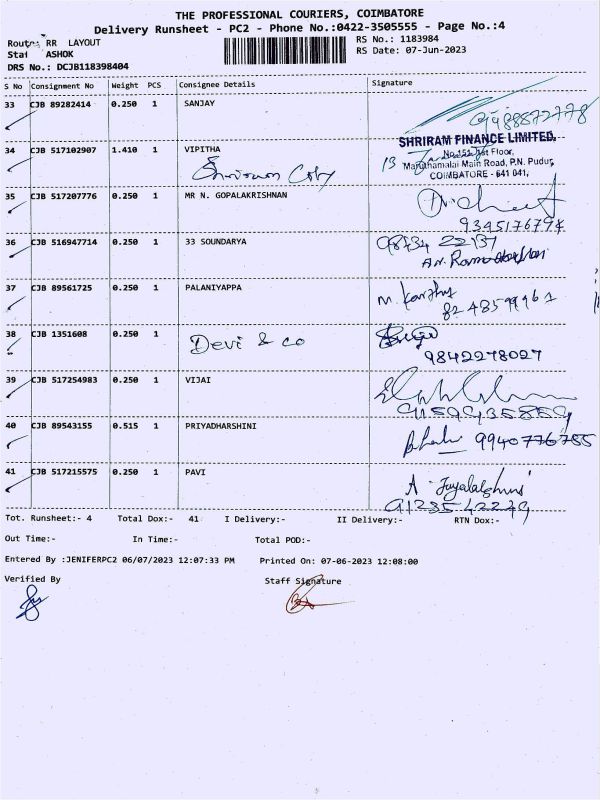 THE PROFESSIONAL COURIERS, COIMBATORE
Delivery Runsheet - PC2 - Phone No.:0422-3505555 - Page No.:4
RR LAYOUT
RS No.: 1183984
ASHOK
RS Date: 07-Jun-2023
DRS No.: DCJB118398404
S No Consignment No Weight PCS Consignee Details Signature
33 CJB 89282414 0.250 1 SANJAY
34 CJB 517102907 1.410 1 VIPITHA
SHRIRAM FINANCE LIMITED,
No.152, 1st Floor,
Maruthamalai Main Road, P.N. Pudur,
COIMBATORE - 641 041.
35 CJB 517207776 0.250 1 MR N. GOPALAKRISHNAN
9345176794
36 CJB 516947714 0.250 1 33 SOUNDARYA
98434 22137
37 CJB 89561725 0.250 1 PALANIYAPPA
M. Karthy
82 48599461
38 CJB 1351608 0.250 1 Devi & co
9842278027
39 CJB 517254983 0.250 1 VIJAI
40 CJB 89543155 0.515 1 PRIYADHARSHINI
9940776785
41 CJB 517215575 0.250 1 PAVI
A Jayalakshmi
Tot. Runsheet:- 4 Total Dox:- 41 I Delivery:- II Delivery:- RTN Dox:-
Out Time:- In Time:- Total POD:-
Entered By :JENIFERPC2 06/07/2023 12:07:33 PM Printed On: 07-06-2023 12:08:00
Verified By Staff Signature